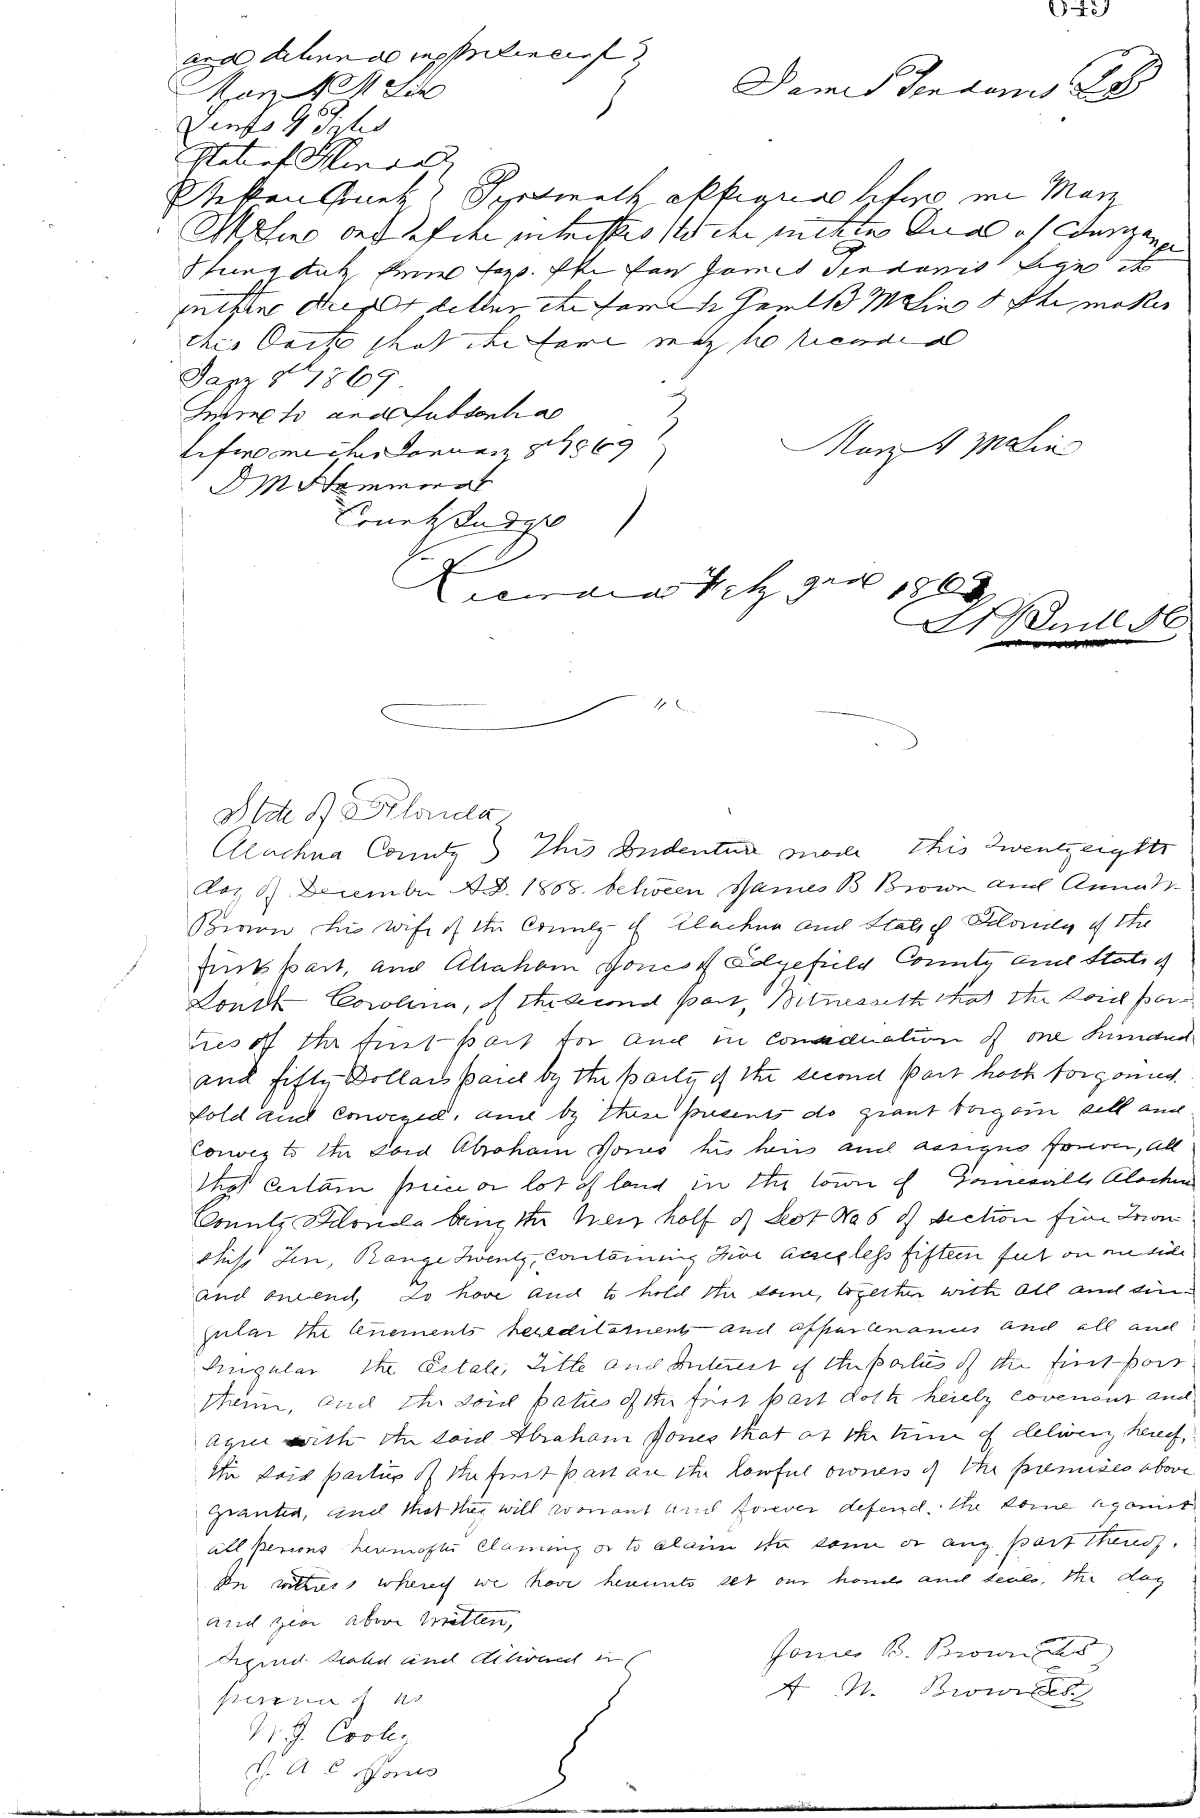 and delivered in presence of
Mary A M Lin
James Tendarvis LS
State of Florida
County Personally appeared before me Mary
A McLin one of the witnesses to the within Deed of Conveyance
& being duly sworn says. She saw James Tendarvis sign the
within deed & deliver the same to James B McLin & she makes
this Oath that the same may be recorded
Jany 8th 1869
Sworn to and Subscribed
before me this January 8th 1869
Mary A McLin
D M Hammond
County Judge
Recorded 1869
State of Florida
Alachua County } This Indenture made this Twenty eighth
day of December A.D. 1868. between James B Brown and Anna
Brown his wife of the County of Alachua and State of Florida of the
first part, and Abraham Jones of Edgefield County and State of
South Carolina, of the second part, Witnesseth that the said par-
ties of the first part for and in consideration of one hundred
and fifty Dollars paid by the party of the second part hath bargained
sold and conveyed, and by these presents do grant bargain sell and
convey to the said Abraham Jones his heirs and assigns forever, all
that certain piece or lot of land in the town of Gainesville Alachua
County Florida being the West half of Lot No 6 of section five Town
ship Ten, Range Twenty, containing Five acres less fifteen feet on one side
and one end, To have and to hold the same, together with all and sin-
gular the tenements hereditaments and appurtenances and all and
Singular the Estate, Title and Interest of the parties of the first part
therein, and the said paties of the first part doth hereby covenant and
agree with the said Abraham Jones that at the time of delivery hereof,
the said parties of the first part are the lawful owners of the premises above
granted, and that they will warrant and forever defend. the same against
all persons hereinafter claming or to claim the same or any part thereof.
In witness whereof we have hereunto set our hands and seals, the day
and year above written,
Signed sealed and delivered in
James B. Brown
presence of us
A N. Brown
Cooley
J. A C Jones